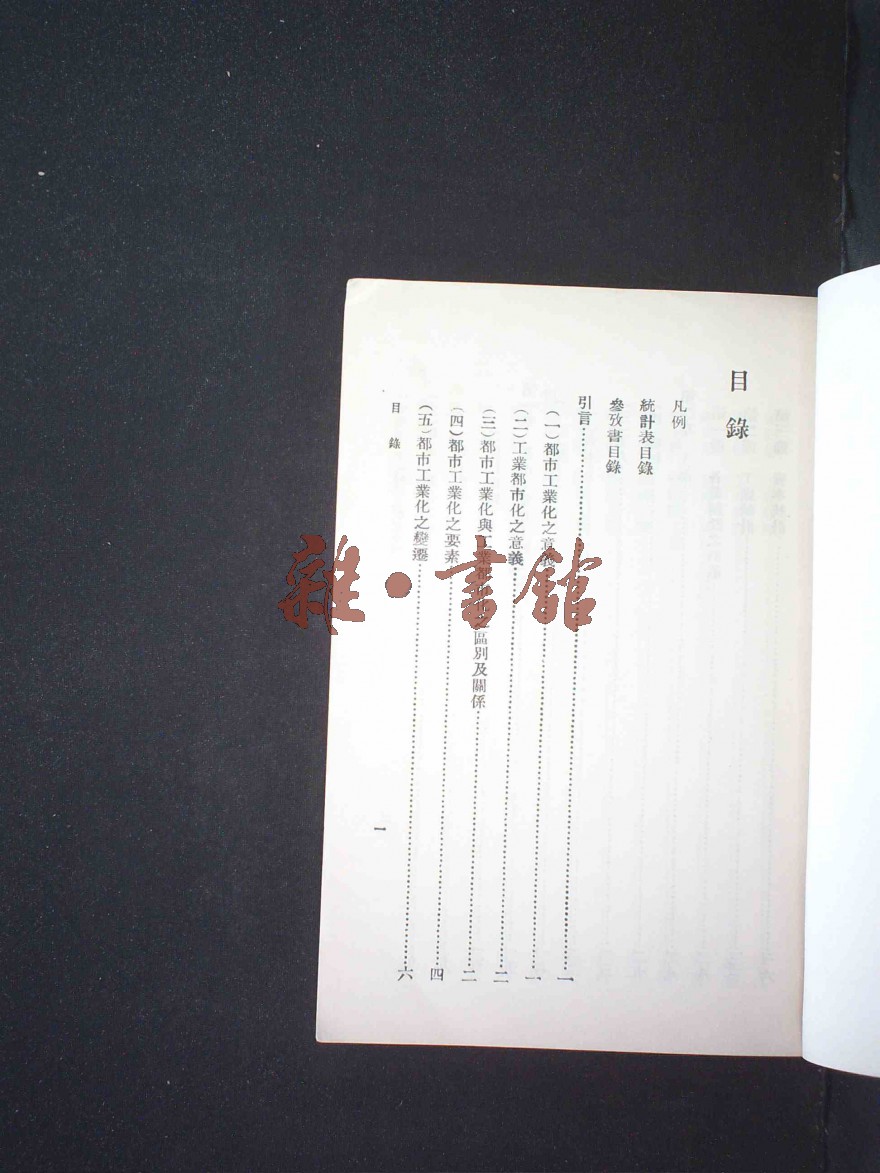 目錄
凡例
統計表目錄
參攷書目錄
引言……一
(一)都市工業化之意義……一
(二)工業都市化之意義……二
(三)都市工業化與工業都市化之區別及關係……二
(四)都市工業化之要素……四
(五)都市工業化之變遷……六
目錄
一
雜·書館